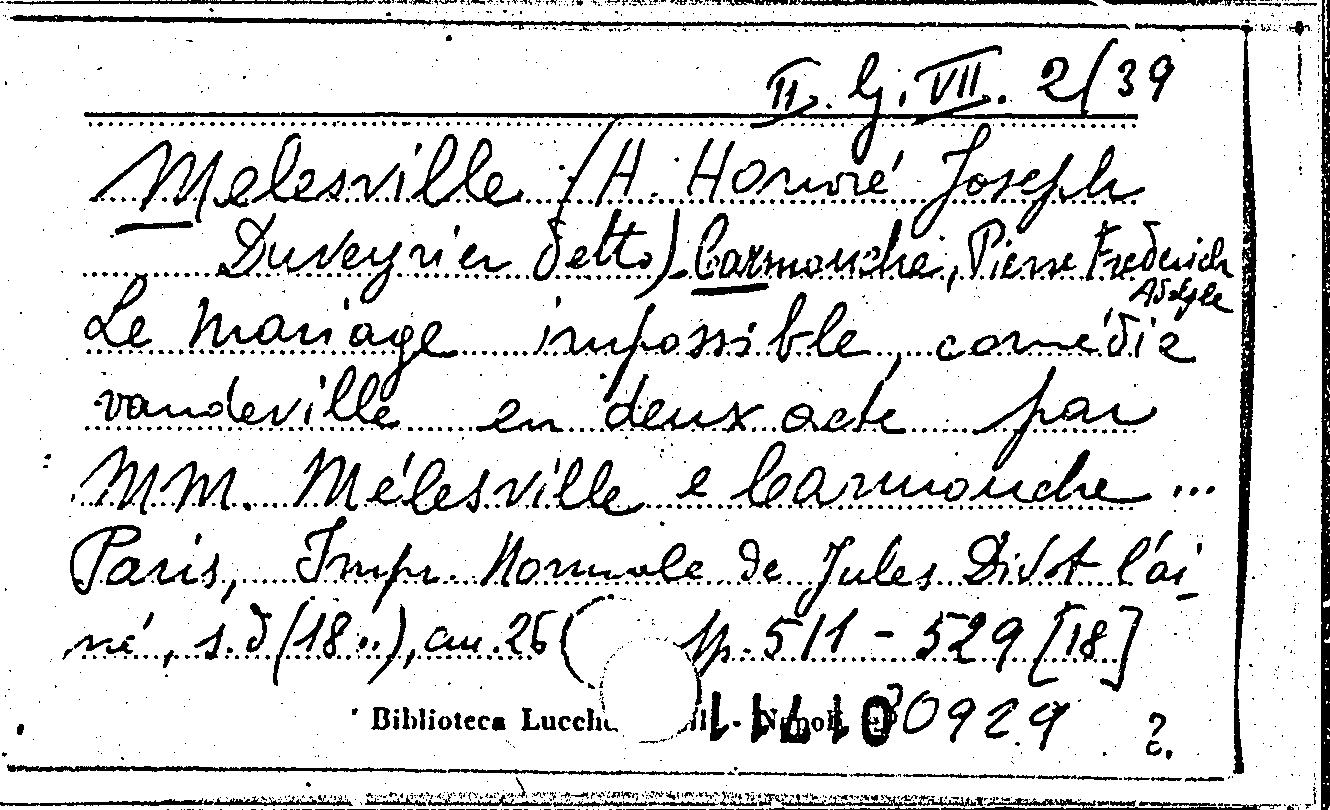 II. G. VII. 2/39
Melesville (A. Honoré Joseph
Duveyrier detto) Carmouche, Pierre Frederich
Adolphe
Le mariage impossible, comédie
vaudeville en deux acte par
MM. Mélesville e Carmouche ...
Paris, Impr. Normale de Jules Didot l'ai-
né, s.d (18..), cm. 26 ( pp. 511 - 529 [18]
Biblioteca Lucche - Napoli
30929 2.